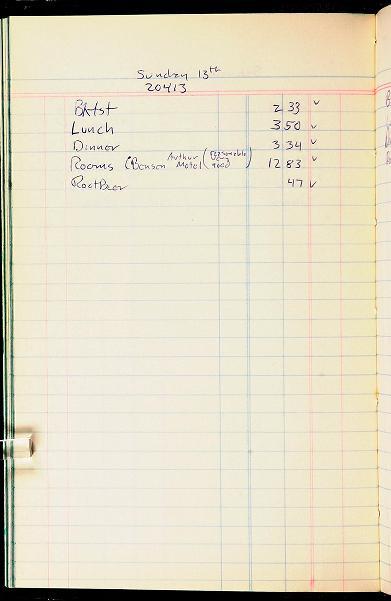 Sunday 13th
20413
BKfst 2 33 ✓
Lunch 3 50 ✓
Dinner 3 34 ✓
Rooms (Benson Arthur Motel (Reasonable good) 12 83 ✓
RootBeer 47 ✓